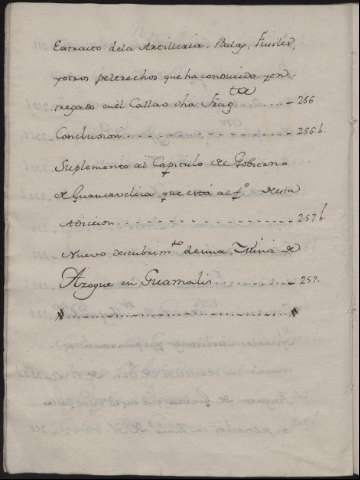 Extracto dela Artilleria, Balas, Fusiles,
y otros pertrechos que ha conducido y en
tregado en el Callao dha Fragta - 256
Conclusion . . . . . . . . . . . . . . . 256b.
Suplemento al Capitulo de Gobierno
de Guancavelica que está al fo de esta
Adicion . . . . . . . . . . . . . . . 257b
Nuevo descubrimto de una Mina de
Azogue en Guamalis . . . . . . . . . . 257.